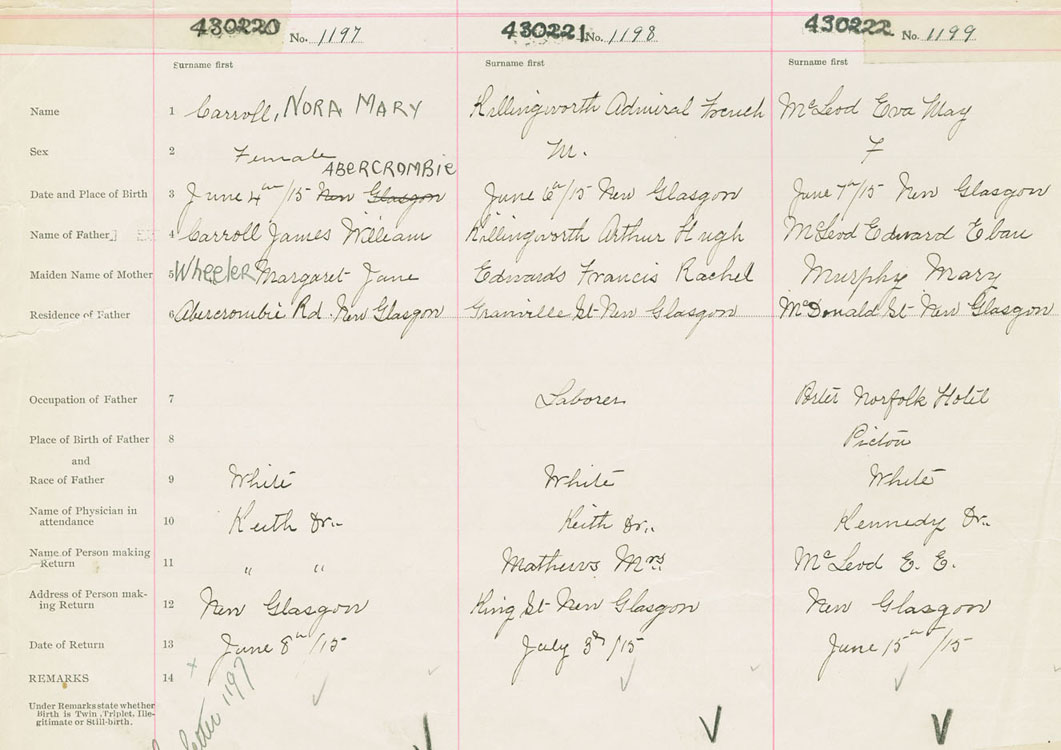 430220 No. 1197 430221 No. 1198 430222 No. 1199
Surname first Surname first Surname first
Name 1 Carroll, NORA MARY Killingworth Admiral French McLeod Eva May
Sex 2 Female M. F
ABERCROMBIE
Date and Place of Birth 3 June 4th/15 New Glasgow June 6th/15 New Glasgow June 7th/15 New Glasgow
Name of Father 4 Carroll James William Killingworth Arthur Hugh McLeod Edward Eban
Maiden Name of Mother 5 Wheeler Margaret Jane Edwards Francis Rachel Murphy Mary
Residence of Father 6 Abercrombie Rd. New Glasgow Granville St New Glasgow McDonald St New Glasgow
Occupation of Father 7 Laborer Porter Norfolk Hotel
Place of Birth of Father 8 Pictou
and
Race of Father 9 White White White
Name of Physician in
attendance 10 Keith Dr. Keith Dr. Kennedy Dr.
Name of Person making
Return 11 " " Mathews Mrs McLeod E. E.
Address of Person mak-
ing Return 12 New Glasgow King St New Glasgow New Glasgow
Date of Return 13 June 8th/15 July 3rd/15 June 15th/15
REMARKS 14
Under Remarks state whether
Birth is Twin, Triplet, Ille-
gitimate or Still-birth.
Letter 1197